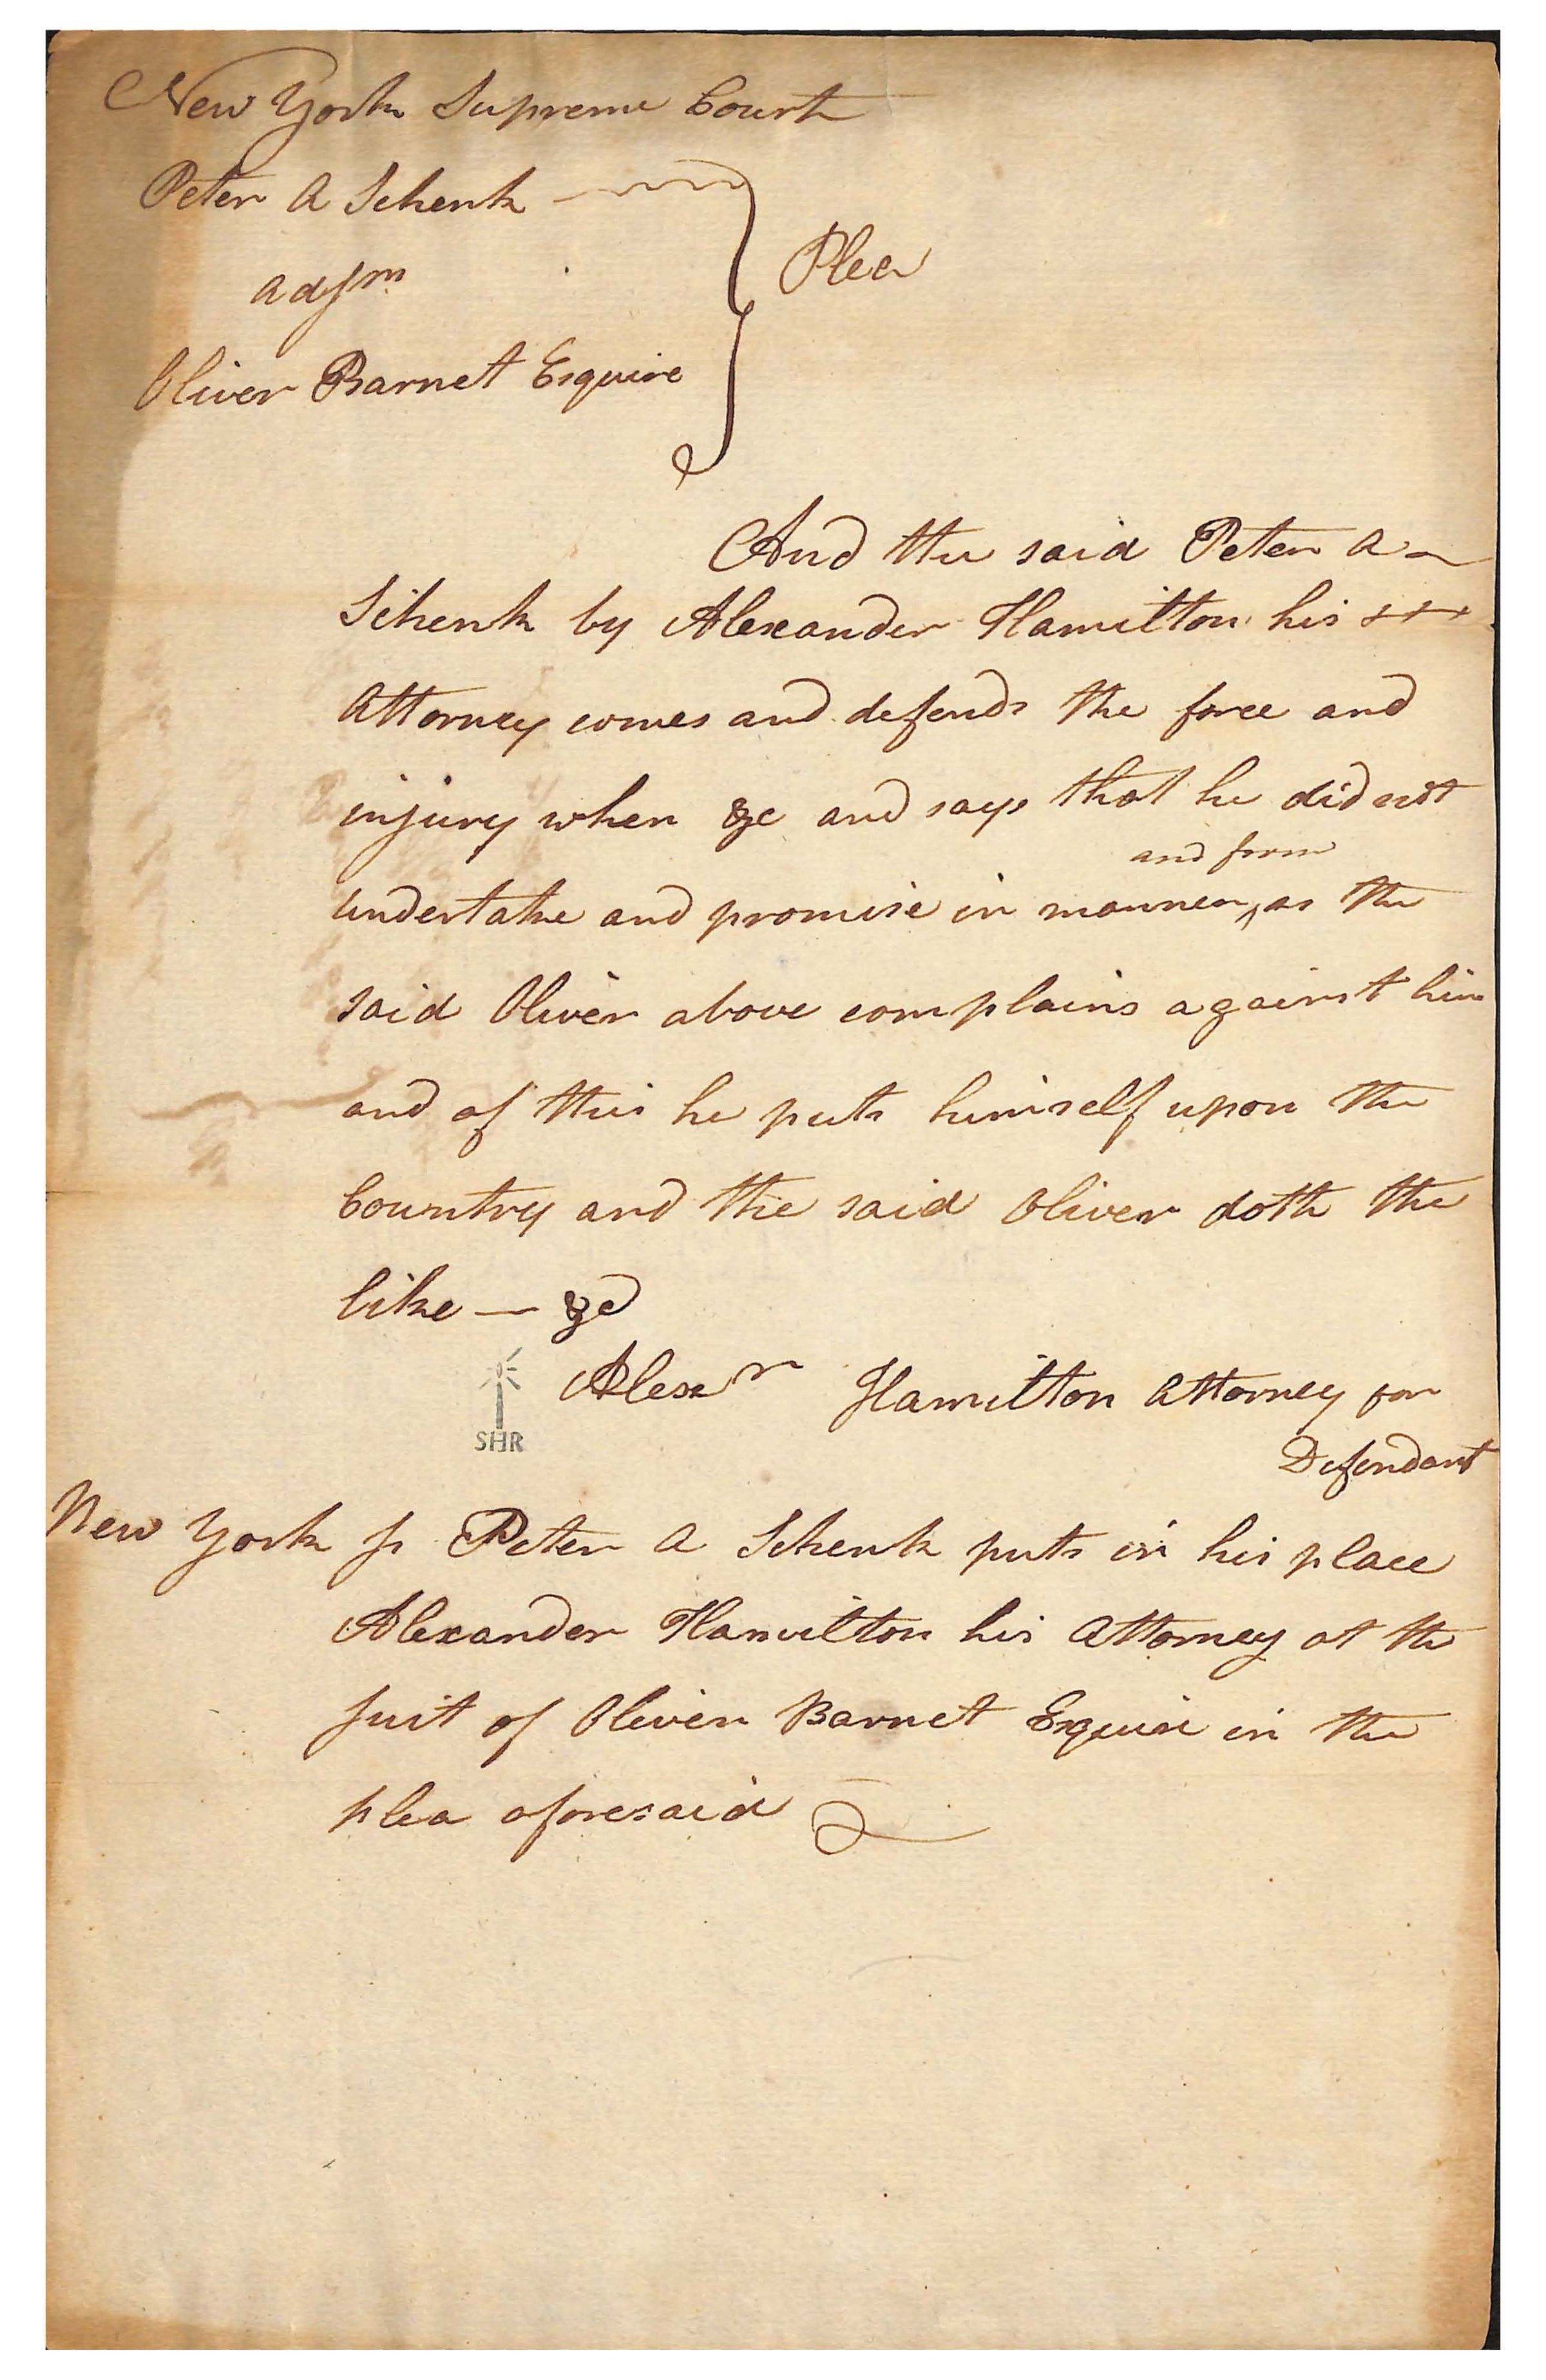 New York Supreme Court
Peter A Schenk
adsm
Oliver Barnet Esquire
Plea
And the said Peter A
Schenk by Alexander Hamilton his
Attorney comes and defends the force and
injury when &c and says that he did not
and form
undertake and promise in manner ‸ as the
said Oliver above complains against him
and of this he puts himself upon the
Country and the said Oliver doth the
like — &c
Alexr Hamilton Attorney for
Defendant
SHR
New York ss Peter A Schenk puts in his place
Alexander Hamilton his Attorney at the
suit of Oliver Barnet Esquire in the
plea aforesaid